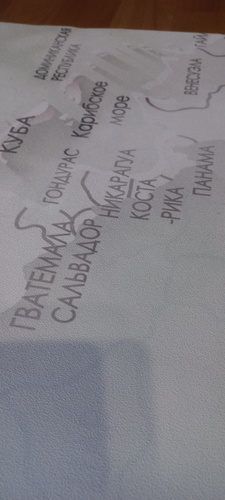 ДОМИНИКАНСКАЯ
РЕСПУБЛИКА
КУБА
Карибское
море
ВЕНЕСУЭЛА
ГАЙ
ГОНДУРАС
НИКАРАГУА
КОСТА
-РИКА
ПАНАМА
ГВАТЕМАЛА
САЛЬВАДОР